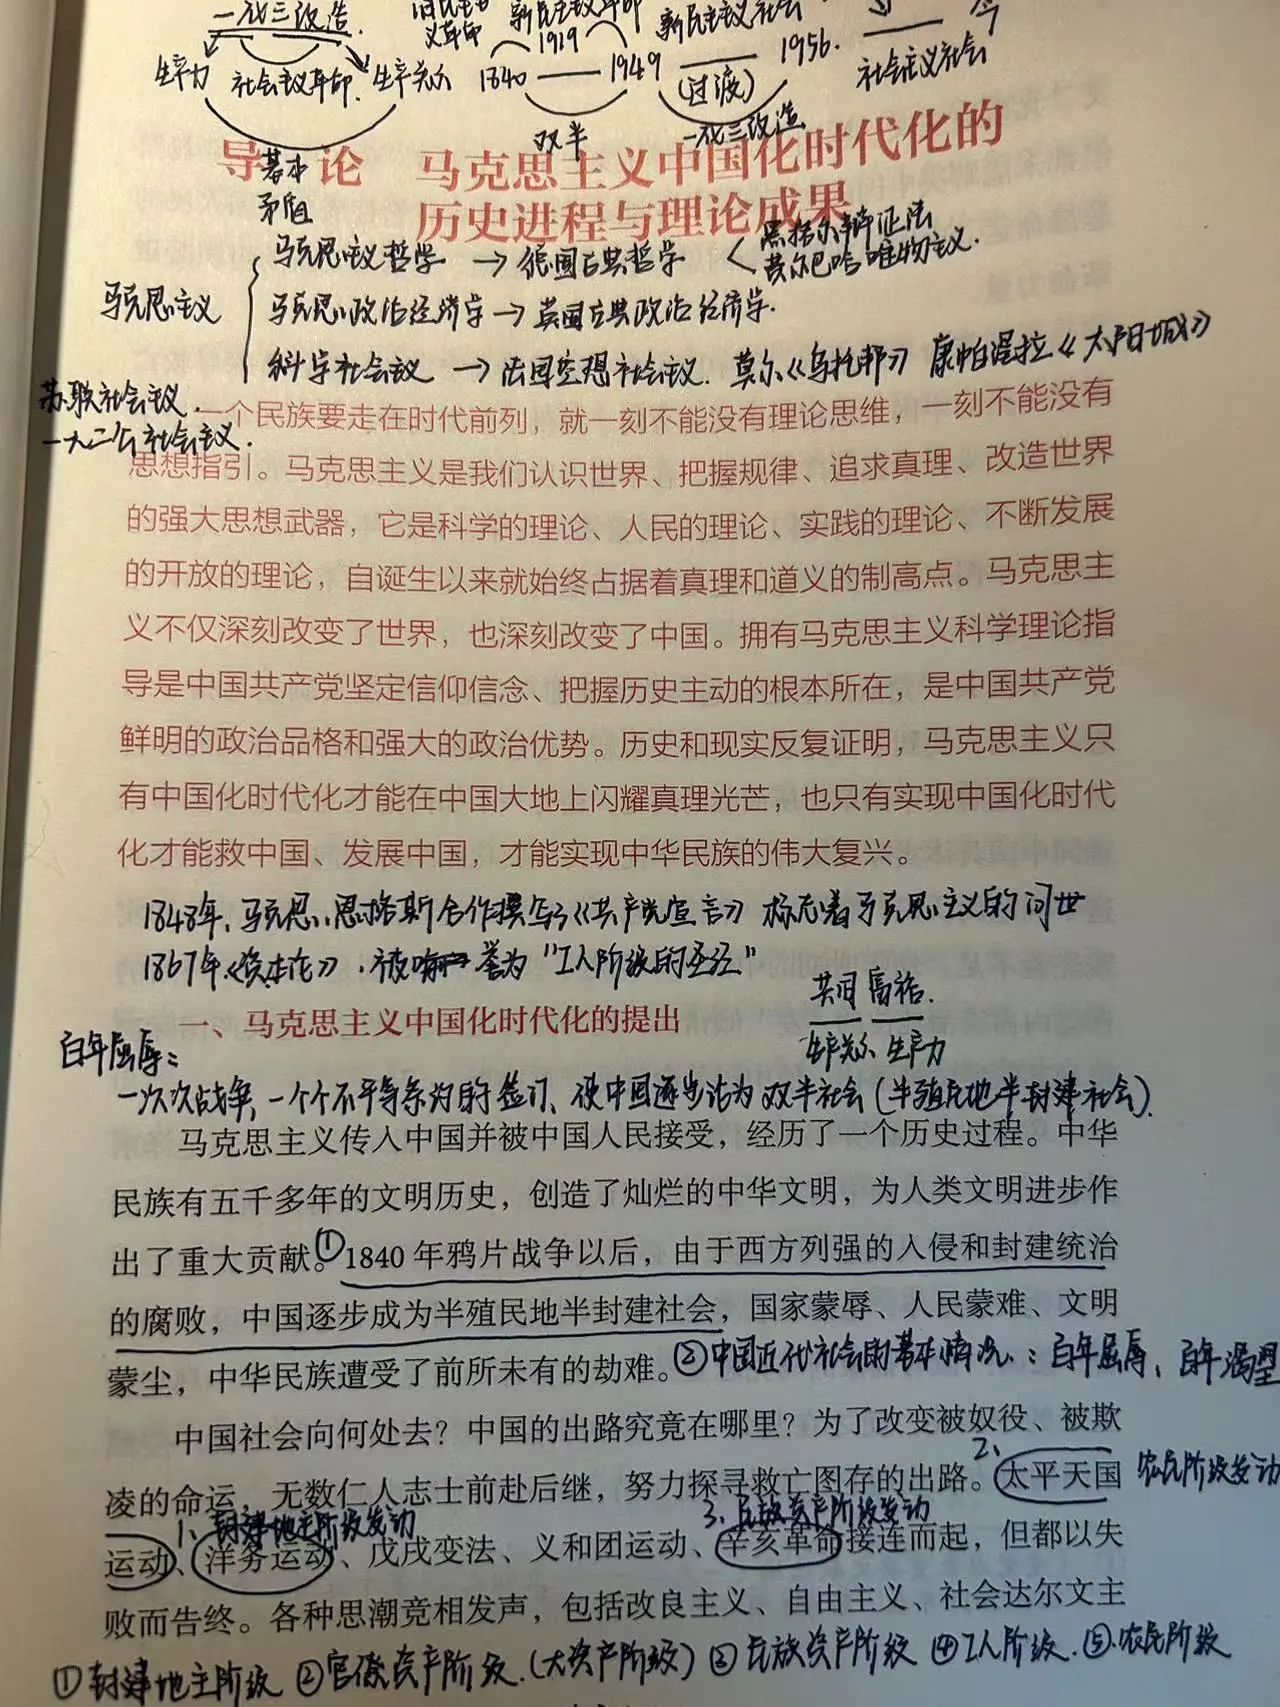 一化三改造.
义革命
新民主主义革命
新民主主义社会
今
1919
生产力 社会主义革命. 生产关系
1840 — 1949 — 1956. —
(过渡)
社会主义社会
双半
一化三改造
导 论 马克思主义中国化时代化的
基本
矛盾
历史进程与理论成果
马克思主义哲学 → 德国古典哲学 < 黑格尔辩证法
费尔巴哈唯物主义.
马克思主义
马克思政治经济学 → 英国古典政治经济学.
科学社会主义 → 法国空想社会主义. 莫尔《乌托邦》 康帕湼拉《太阳城》
苏联社会主义.
社会主义.
一个民族要走在时代前列，就一刻不能没有理论思维，一刻不能没有
思想指引。马克思主义是我们认识世界、把握规律、追求真理、改造世界
的强大思想武器，它是科学的理论、人民的理论、实践的理论、不断发展
的开放的理论，自诞生以来就始终占据着真理和道义的制高点。马克思主
义不仅深刻改变了世界，也深刻改变了中国。拥有马克思主义科学理论指
导是中国共产党坚定信仰信念、把握历史主动的根本所在，是中国共产党
鲜明的政治品格和强大的政治优势。历史和现实反复证明，马克思主义只
有中国化时代化才能在中国大地上闪耀真理光芒，也只有实现中国化时代
化才能救中国、发展中国，才能实现中华民族的伟大复兴。
1848年, 马克思、恩格斯合作撰写《共产党宣言》 标志着马克思主义的问世
1867年《资本论》, 被誉为"工人阶级的圣经"
共同 富裕.
生产关系 生产力
一、马克思主义中国化时代化的提出
百年屈辱:
一次次战争、一个个不平等条约的签订、使中国逐步沦为双半社会(半殖民地半封建社会).
马克思主义传入中国并被中国人民接受，经历了一个历史过程。中华
民族有五千多年的文明历史，创造了灿烂的中华文明，为人类文明进步作
出了重大贡献。①1840 年鸦片战争以后，由于西方列强的入侵和封建统治
的腐败，中国逐步成为半殖民地半封建社会，国家蒙辱、人民蒙难、文明
蒙尘，中华民族遭受了前所未有的劫难。②中国近代社会的基本情况: 百年屈辱、百年渴望
中国社会向何处去？中国的出路究竟在哪里？为了改变被奴役、被欺
凌的命运，无数仁人志士前赴后继，努力探寻救亡图存的出路。2、太平天国 农民阶级发动
1、封建地主阶级发动 3、民族资产阶级发动
运动、洋务运动、戊戌变法、义和团运动、辛亥革命接连而起，但都以失
败而告终。各种思潮竞相发声，包括改良主义、自由主义、社会达尔文主
①封建地主阶级 ②官僚资产阶级.(大资产阶级) ③民族资产阶级 ④工人阶级. ⑤.农民阶级